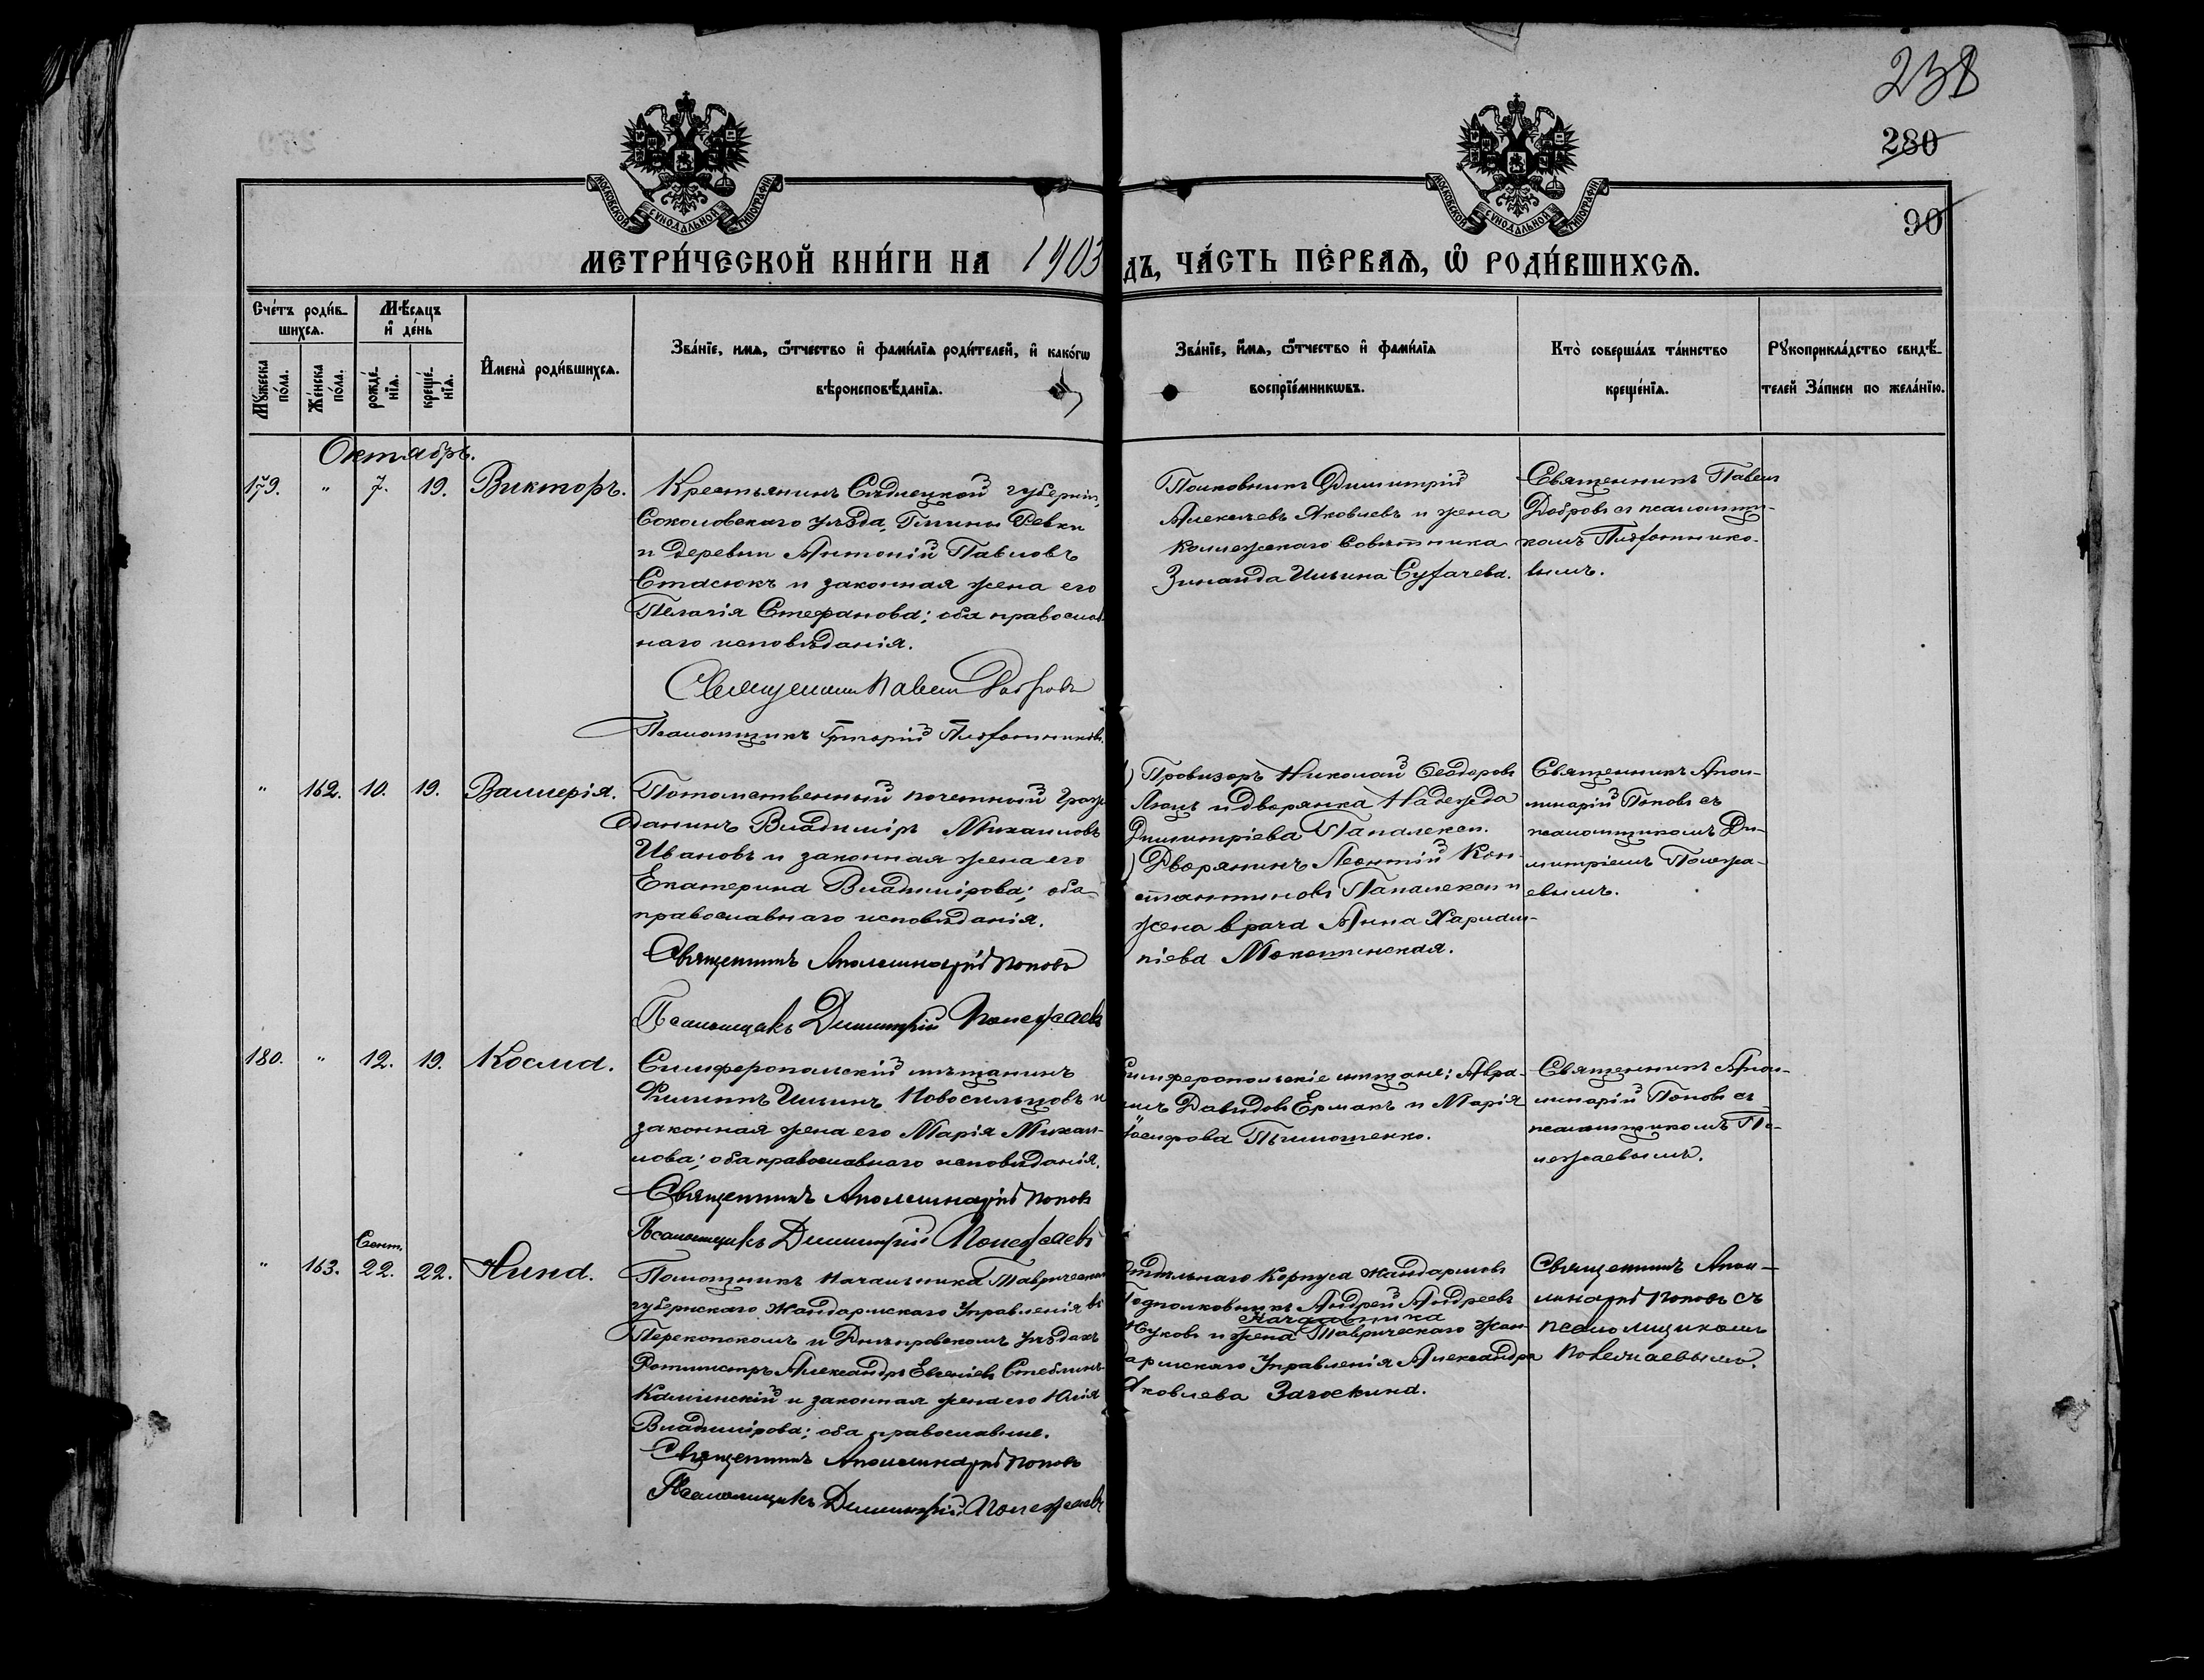 238
280
90
МОСКОВСКОЙ СѴНОДАЛЬНОЙ ТИПОГРАФІИ
МОСКОВСКОЙ СѴНОДАЛЬНОЙ ТИПОГРАФІИ
МЕТРИ́ЧЕСКОЙ КНИ́ГИ НА 1903
ДЪ, ЧА́СТЬ ПЕ́РВАѦ, Ѡ҆ РОДИ́ВШИХСѦ.
Сче́тъ роди́в-
шихсѧ.
Мѣ́сѧцъ
и҆ де́нь
Мꙋ́жеска по́ла.
Же́нска по́ла.
рожде́-
нїѧ.
креще́-
нїѧ.
И҆мена̀ роди́вшихсѧ.
Зва́нїе, и́мѧ, ѻ҆́тчество и҆ фами́лїѧ роди́телей, и҆ како́гѡ
вѣроисповѣ́данїѧ.
Зва́нїе, и́мѧ, ѻ҆́тчество и҆ фами́лїѧ
воспрїе́мникѡвъ.
Кто̀ соверша́лъ та́инство
креще́нїѧ.
Рꙋкоприкла́дство свидѣ́-
телей за́писи по жела́нїю.
Октябрь.
179. " 7. 19. Викторъ.
Крестьянинъ Сѣдлецкой губерніи,
Соколовскаго уѣзда, Гмины
и деревни Антоній Павловъ
Стасюкъ и законная жена его
Пелагія Стефанова; оба православ
наго исповѣданія.
Священникъ Павелъ Добровъ
Псаломщикъ Григорій
Полковникъ Димитрій
Алексѣевъ Яковлевъ и жена
Коллежскаго Совѣтника
Зинаида Ильина
Священникъ Павелъ
Добровъ съ псаломщи-
комъ
вымъ.
" 162. 10. 19. Валлерія.
Потомственный почетный граж
данинъ Владиміръ Михаиловъ
Ивановъ и законная жена его
Екатерина Владимірова; оба
православнаго исповѣданія.
Священникъ Аполлинарій Поповъ
Псаломщикъ Димитрій Полежаевъ
) Провизоръ Николай Ѳеодоровъ
и дворянка Надежда
Димитріева Папалекси.
) Дворянинъ Леонтій Кон-
стантиновъ Папалекси и
жена врача Анна Харлам-
піева
Священникъ Апол-
линарій Поповъ съ
псаломщикомъ Ди-
митріемъ Полежа-
евымъ.
180. " 12. 19. Косма.
Симферопольскій мѣщанинъ
Филиппъ Ильинъ Новосильцовъ и
законная жена его Марія Михаи-
лова; оба православнаго исповѣданія.
Священникъ Аполлинарій Поповъ
Псаломщикъ Димитрій Полежаевъ
Симферопольскіе мѣщане: Авра-
мъ Давидовъ Ермакъ и Марія
Іосифова
Священникъ Апол-
линарій Поповъ съ
псаломщикомъ По-
лежаевымъ.
Сент.
" 163. 22. 22. Нина.
Помощникъ Начальника Таврическаго
губернскаго Жандармскаго Управленія въ
Перекопскомъ и Днѣпровскомъ уѣздахъ
Ротмистръ Александръ Евгеніевъ Стеблинъ
Каминскій и законная жена его Юлія
Владимірова; оба православные.
Священникъ Аполлинарій Поповъ
Псаломщикъ Димитрій Полежаевъ
Отдѣльнаго Корпуса Жандармовъ
Подполковникъ Андрей Андреевъ
Жуковъ и жена Начальника Таврическаго Жан-
дармскаго Управленія Александра
Яковлева Загоскина.
Священникъ Апол-
линарій Поповъ съ
псаломщикомъ
Полежаевымъ.